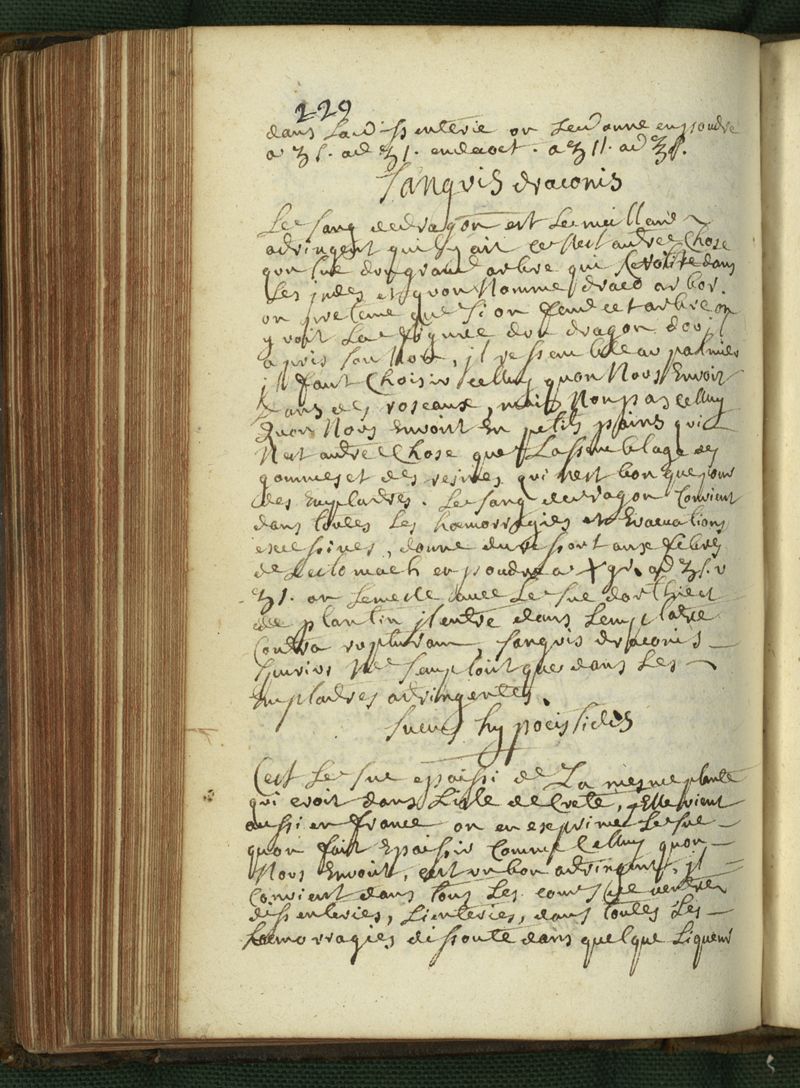 229
dans la dissenterie on le donne en poudre
a ʒ s. ad ʒ 1. en decoct. a ʒ 11. ad ℥ s.
Sanguis draconis
Le sang de dragon est le meilleur
adstringent quil y ait ce nest autre chose
quun suc dun grand arbre qui dans
Les jndes et quon Nomme draco arbor.
on pretend que si on fend cet arbre on
y voit La figure dun dragon dou jl
a pris son Nom, jl ressemble au palmier
jl faut Choisir celluy quon Nous Envoit
dans des roseaux, mais Non pas celluy
quon Nous Envoit En petits pains qui
Nest autre Chose que Lassemblage des
gommes et des resines qui nest bon que pour
des Emplastres. Le sang de dragon Convient
dans toutes Les hœmorragies et Evacuations
excessives, donne du ressort aux fibres
de Lestomach en poudre a X gr. ad ʒ s. v
ʒ 1. on Le mesle avec Le suc
de plantin jl entre dans Lemplastre
Contra rupturam, sanguis draconis
Ne semploit que dans Les
Emplastres adstringentes.
Sucus hypocistidis
Cest Le suc epaissi de La mesme plante
qui croit dans Lisle de Crete, Elle vient
aussi en france on en exprime Le suc
quon fait Epaissir Comme Celluy quon
Nous Envoit, est un bon adstringent, jl
Convient dans tous Les cours de ventre
dissenteries, Lienteries, dans toutes Les
hœmorragies dissoute dans quelque Liqueur